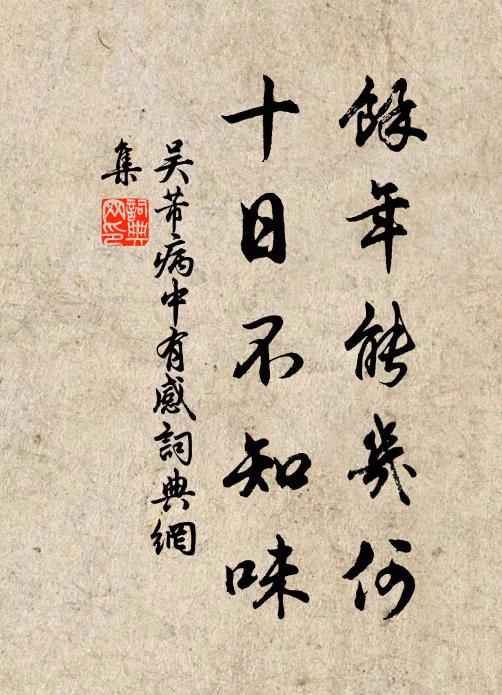 餘年能幾何
十日不知味
吳芾病中有感詞典網
集
詞典
网印